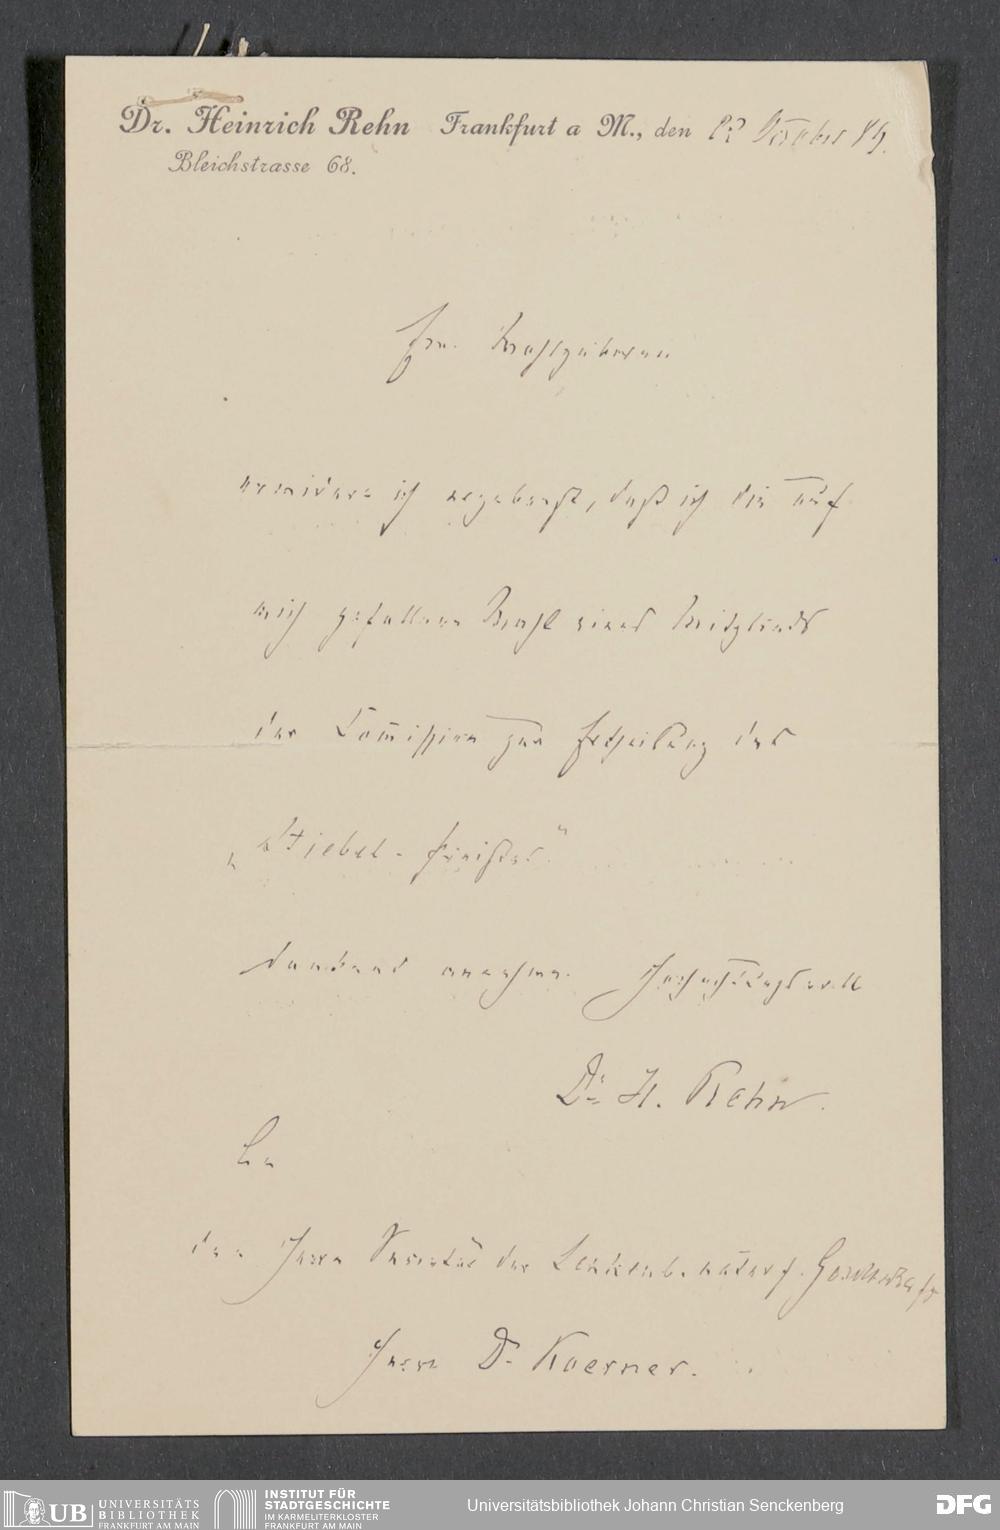 Dr. Heinrich Rehn Frankfurt a M., den October 89.
Bleichstrasse 68.
Ew. Wohlgeboren
erwidere ich ergebenst, daß ich die auf
mich gefallene Wahl eines Mitglieds
der Com̄ission zur Ertheilung des
„Stiebel-Preises“
dankend annehme. Hochachtungsvoll
Dr H. Rehn.
An
den Herrn Secretär der Senkenb. naturf. Gesellschaft
Herrn Dr Koerner.
UB UNIVERSITÄTS
BIBLIOTHEK
FRANKFURT AM MAIN
INSTITUT FÜR
STADTGESCHICHTE
IM KARMELITERKLOSTER
FRANKFURT AM MAIN
Universitätsbibliothek Johann Christian Senckenberg
DFG